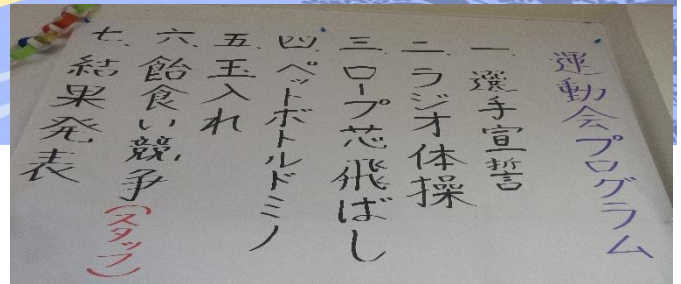 運動会プログラム
一、選手宣誓
二、ラジオ体操
三、ロープ芯飛ばし
四、ペットボトルドミノ
五、玉入れ
六、飴食い競争(スタッフ)
七、結果発表